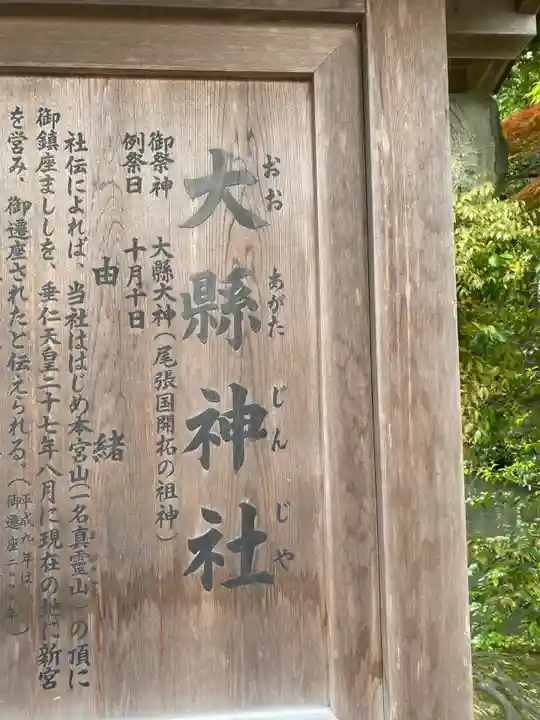 大縣神社
おお あがた じんじゃ
御祭神 大縣大神(尾張国開拓の祖神)
例祭日 十月十日
由緒
社伝によれば、当社ははじめ本宮山(一名真靈山)の頂に
御鎮座まししを、垂仁天皇二十七年八月に現在の地に新宮
を営み、御遷座されたと伝えられる。(平成九年は
御遷座二〇〇〇年)